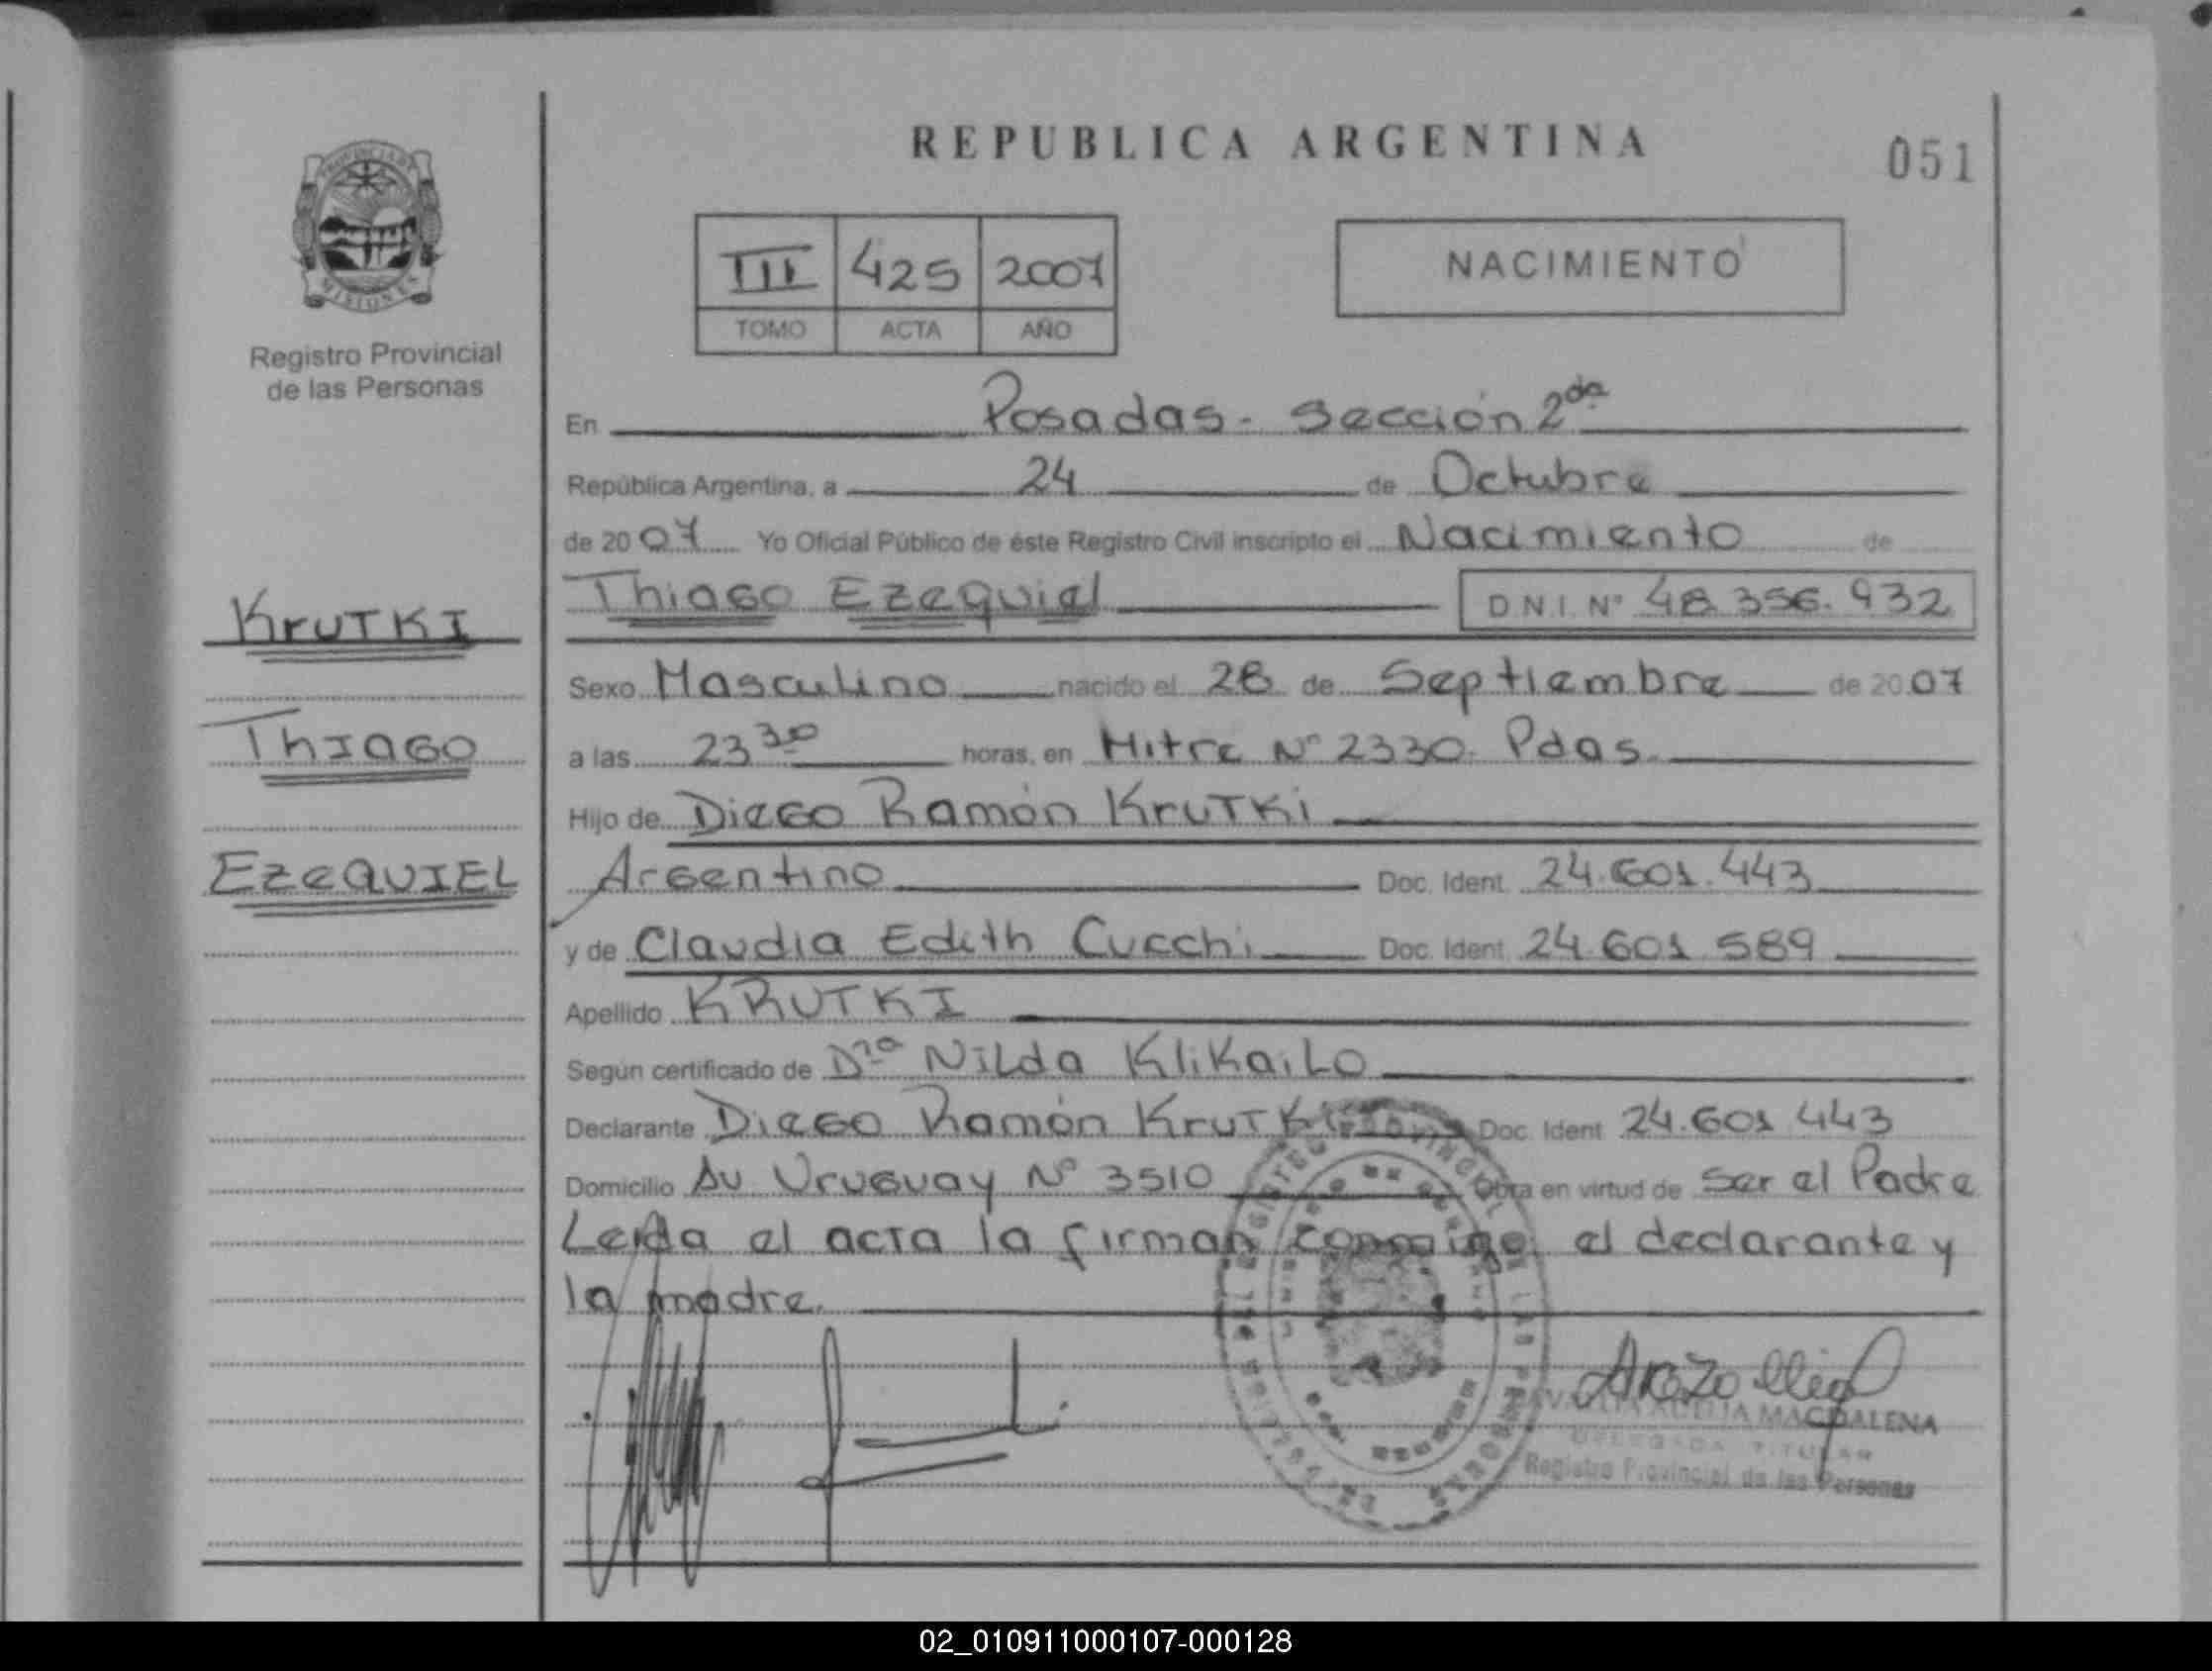 REPUBLICA ARGENTINA
051
PROVINCIA DE
MISIONES
Registro Provincial
de las Personas
III 425 2007
TOMO ACTA AÑO
NACIMIENTO
En Posadas - Sección 2da
República Argentina, a 24 de Octubre
de 20 07 Yo Oficial Público de éste Registro Civil inscripto el Nacimiento de
Thiago Ezequiel D.N.I. Nº 48.356.932
KrUTKI
Thiago
EzeQUIEL
Sexo Masculino nacido el 28 de Septiembre de 20 07
a las 23 30 horas, en Mitre Nº 2330. Pdas.
Hijo de Diego Ramón Krutki
Argentino Doc. Ident. 24.601.443
y de Claudia Edith Cucchi Doc. Ident. 24.601.589
Apellido KRUTKI
Según certificado de Dra Nilda Klikailo
Declarante Diego Ramón Krutki Doc. Ident. 24.601 443
Domicilio Av Uruguay Nº 3510 Obra en virtud de ser el Padre
Leida el acta la firman conmigo el declarante y
la madre.
MAGDALENA
DELEGADA TITULAR
Registro Provincial de las Personas
02_010911000107-000128